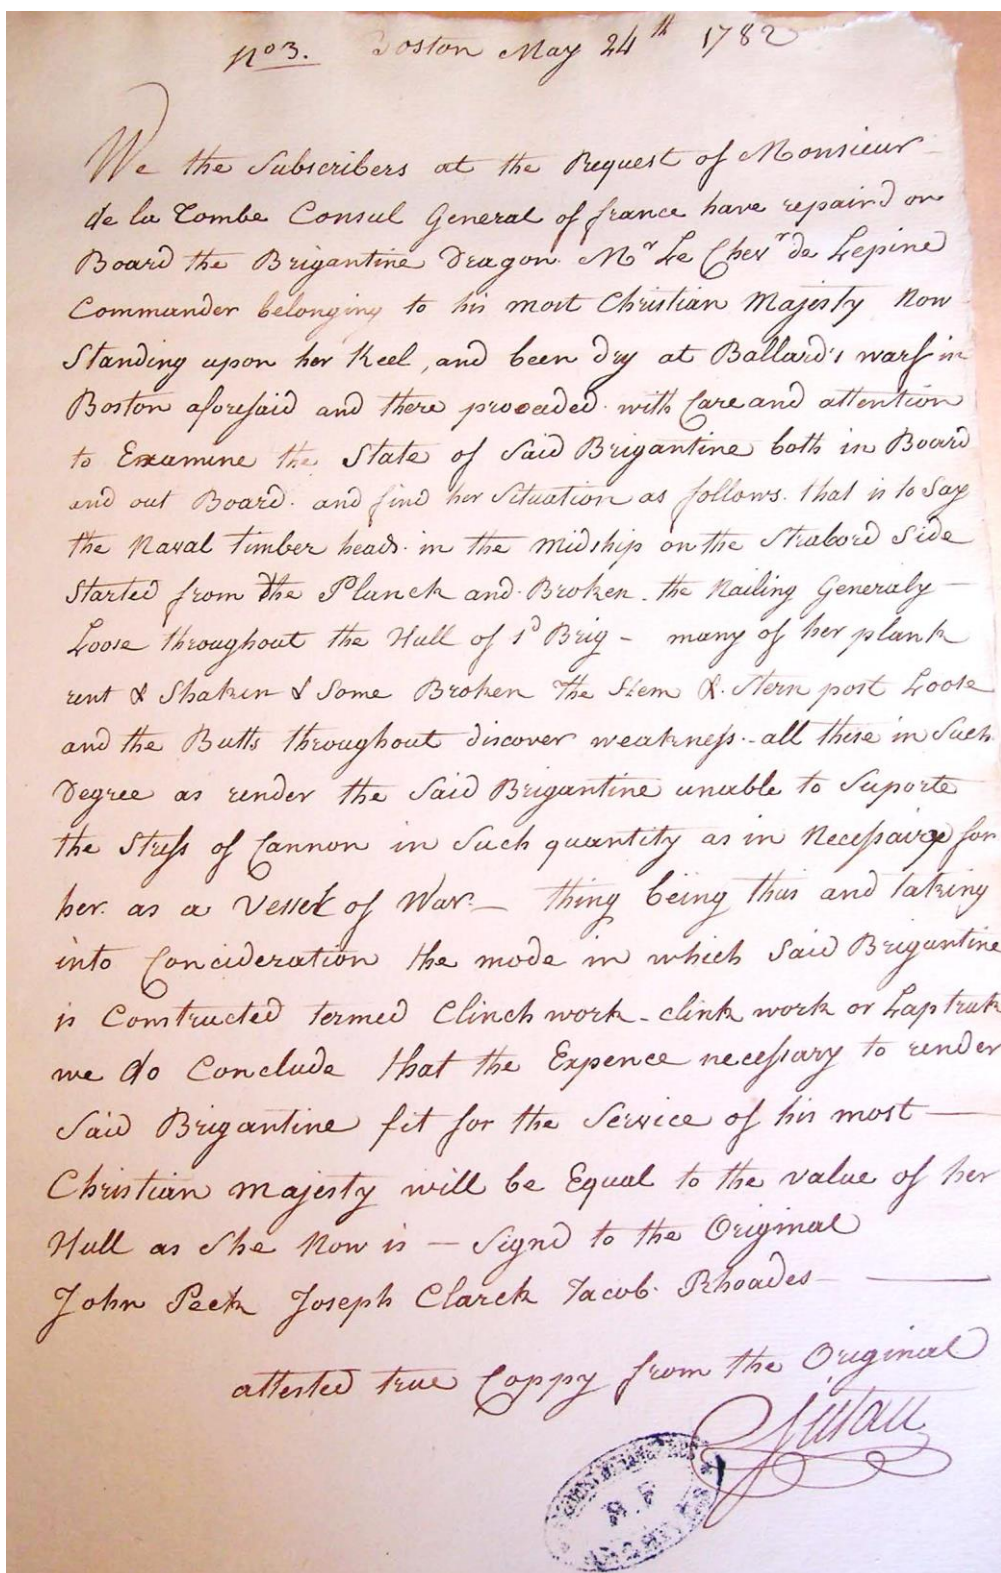 no 3. Boston May 24th 1782
We the Subscribers at the Request of Monsieur
de la Tombe Consul General of france have repaird on
Board the Brigantine Dragon Mr Le Chevr de Lepine
Commander belonging to his most Christian Majesty Now
Standing upon her Keel, and been dry at Ballard's warf in
Boston aforesaid and there proceded with Care and attention
to Examine the State of Said Brigantine both in Board
and out Board. and find her Situation as follows. that is to Say
the Naval timber heads in the Midship on the Strabord Side
Started from the Planck and Broken. the Nailing Generaly
Loose throughout the Hull of sd Brig - many of her plank
rent & Shaken & Some Broken The Stem & Stern post Loose
and the Butts throughout discover weakness - all these in Such
Degree as render the Said Brigantine unable to Suporte
the Stress of Cannon in Such quantity as is Necessaire for
her as a Vessel of War - thing being thus and taking
into Concideration the mode in which Said Brigantine
is Constructed termed Clinch work - clink work or Lap
we do Conclude that the Expence necessary to render
Said Brigantine fit for the Service of his most
Christian majesty will be Equal to the value of her
Hull as She Now is - Signd to the Original
John Peck Joseph Clarck Jacob Rhoades
attested true Coppy from the Original
R.F.